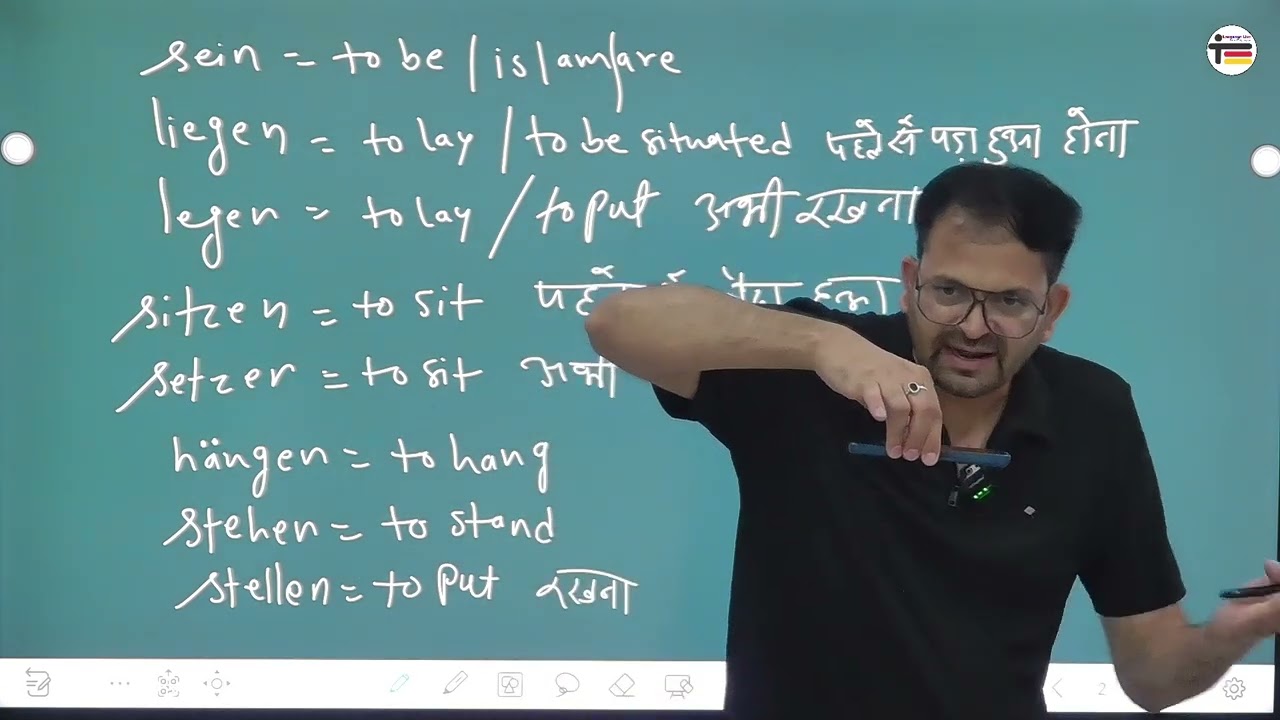 sein = to be / is / am / are
liegen = to lay / to be situated पहले से पड़ा हुआ होना
legen = to lay / to put अभी रखना
sitzen = to sit
setzen = to sit अभी
hängen = to hang
stehen = to stand
stellen = to put रखना
2